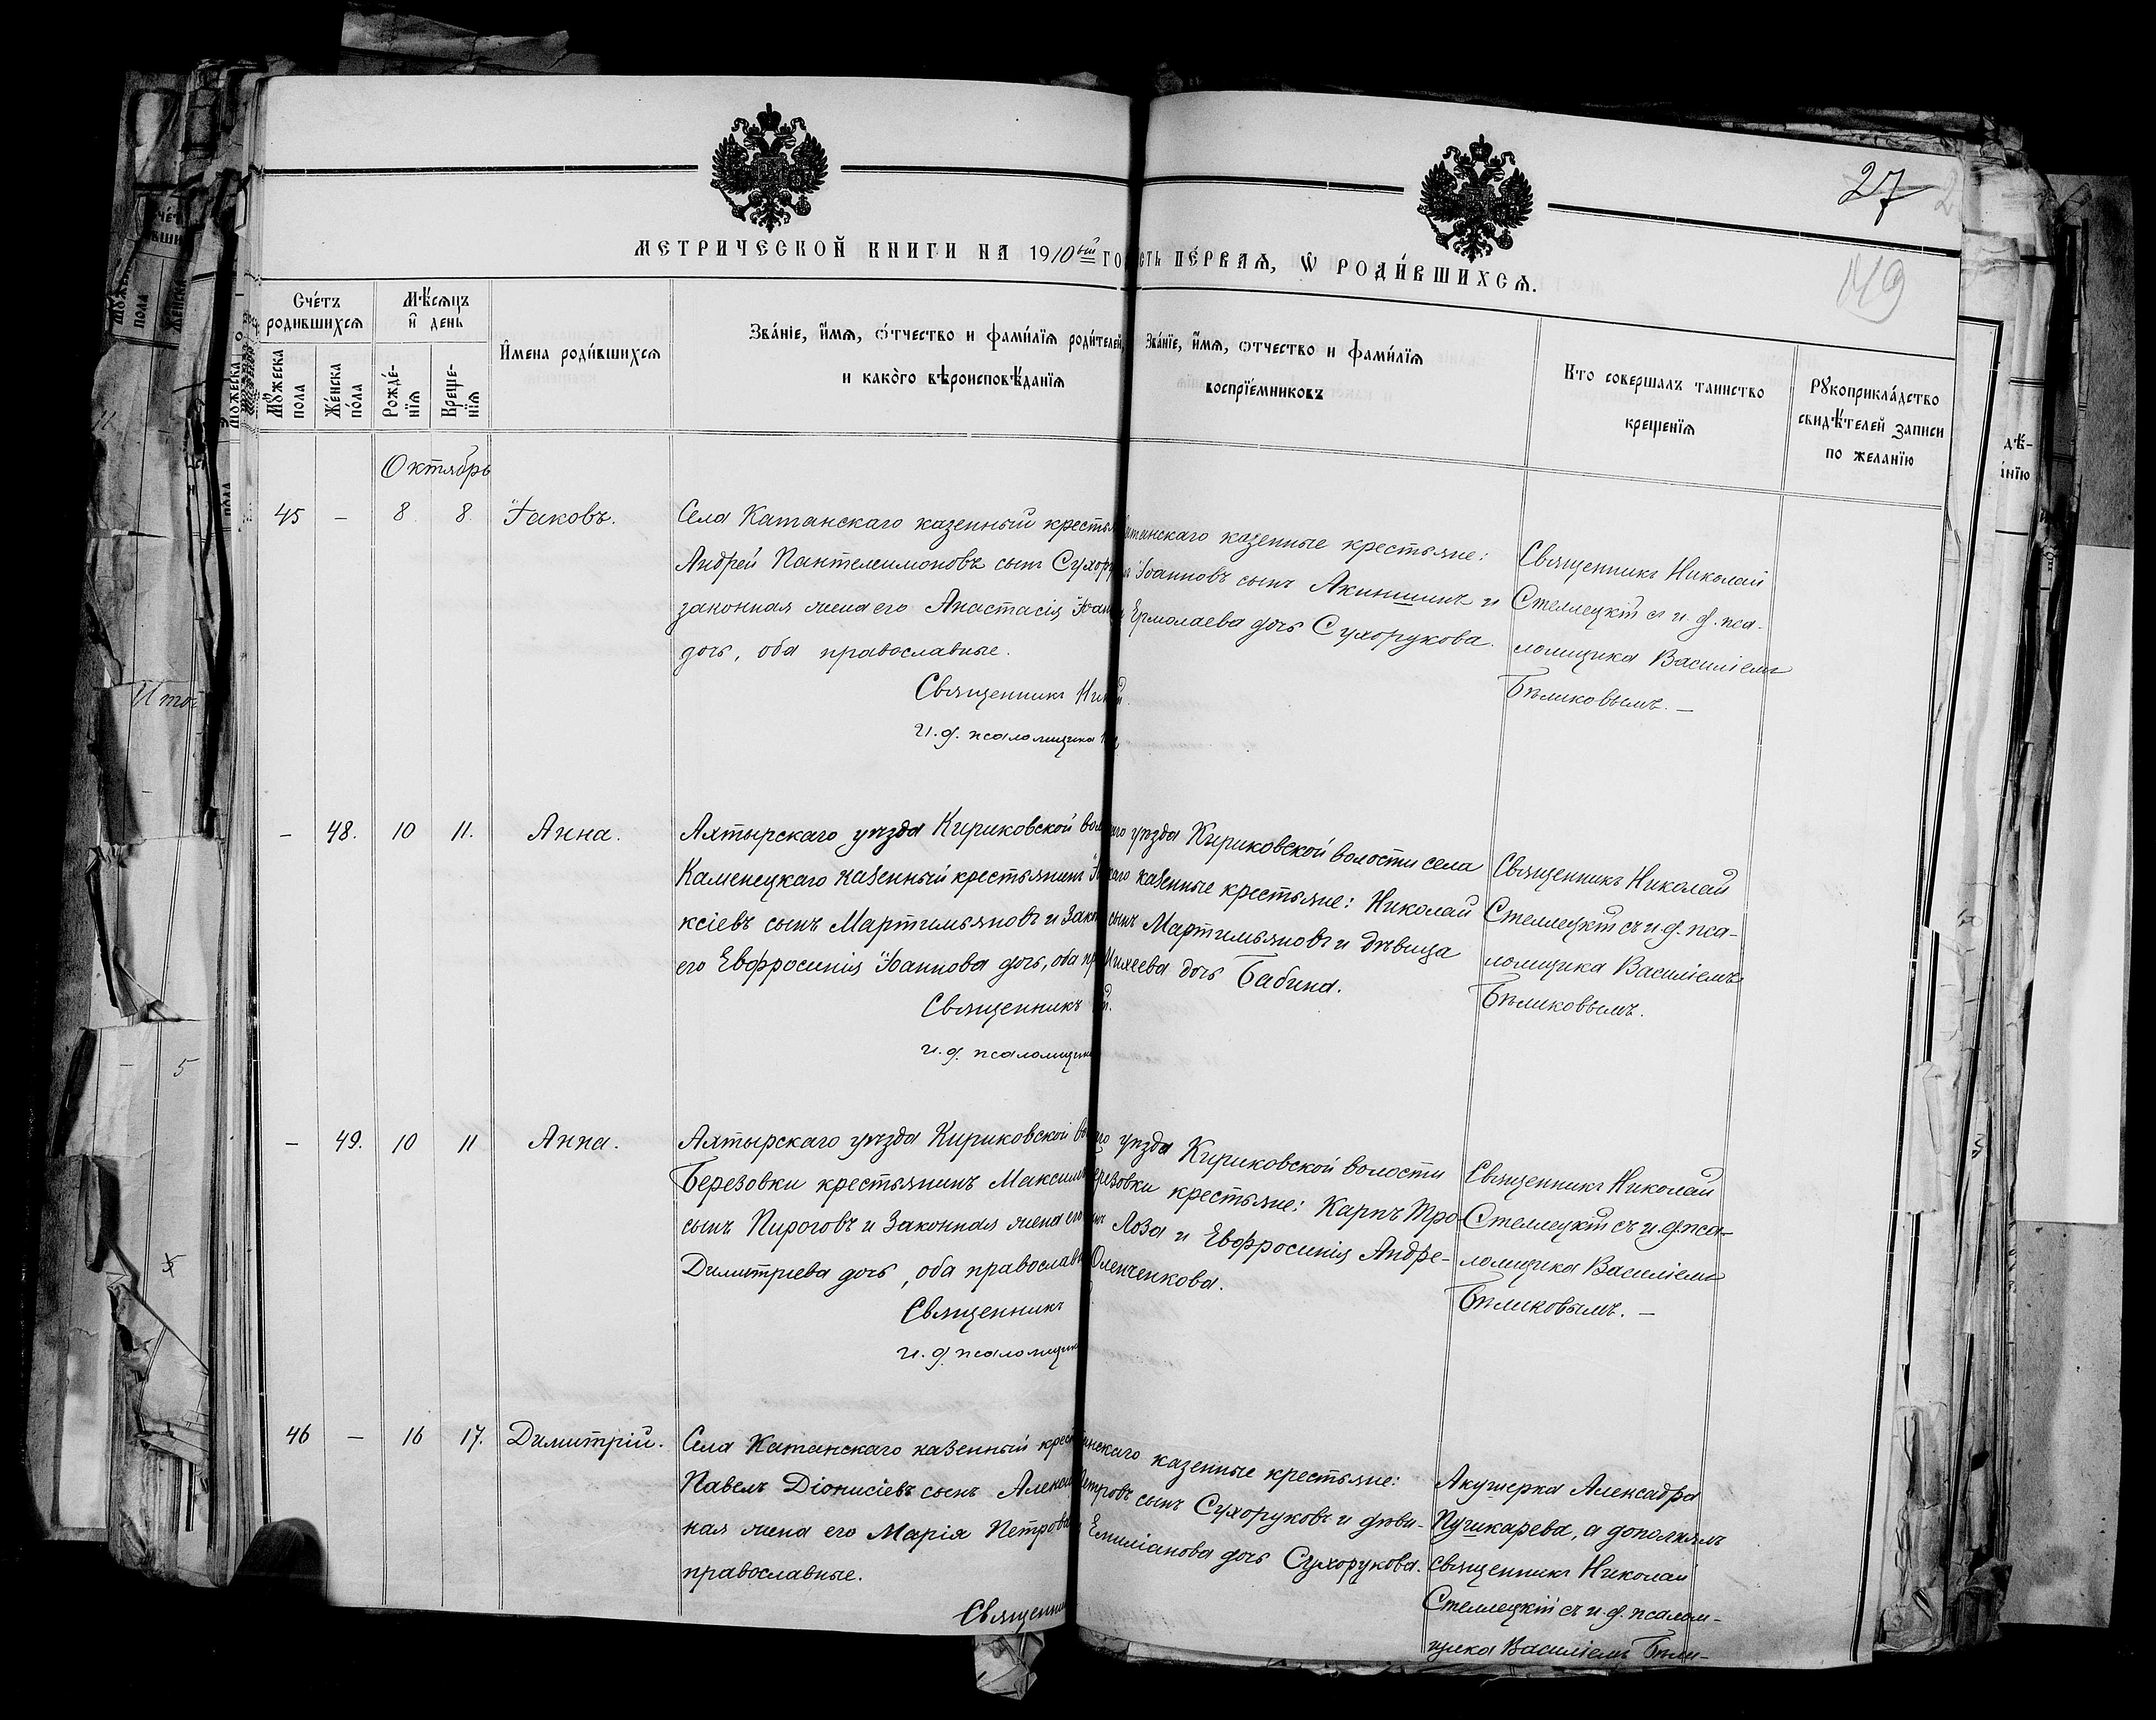 27
149
МЕТРИЧЕСКОЙ КНИГИ НА 1910ый ГО
СТЬ ПЕРВАЯ, Ѡ РОДИВШИХСЯ.
Счетъ родившихся
Мѣсяцъ и день
Мужеска пола
Женска пола
Рожденїя
Крещенїя
Имена родившихся
Званїе, имя, отчество и фамилїя родителей,
и какого вѣроисповѣданїя
Званїе, имя, отчество и фамилїя
воспрїемниковъ
Кто совершалъ таинство
крещенїя
Рукоприкладство
свидѣтелей записи
по желанїю
Октябрь
45 – 8 8 Іаковъ.
Села Катанскаго казенный кресть
Андрей Пантелеимоновъ сынъ Сухору
законная жена его Анастасія Іоан
дочь, оба православные.
Священникъ Ник
И. д. псаломщика
танскаго казенные крестьяне:
Іоанновъ сынъ Акиншинъ и
Ермолаева дочь Сухорукова.
Священникъ Николай
Стеллецкій съ и. д. пса-
ломщика Василіемъ
Бѣликовымъ. –
– 48. 10 11. Анна.
Ахтырскаго уѣзда Кириковской вол
Каменецкаго казенный крестьянинъ
ксіевъ сынъ Мартимьяновъ и закон
его Евфросинія Іоаннова дочь, оба пр
Священникъ
и. д. псаломщика
го уѣзда Кириковской волости села
каго казенные крестьяне: Николай
сынъ Мартимьяновъ и дѣвица
Михеева дочь Бабина.
Священникъ Николай
Стеллецкій съ и. д. пса-
ломщика Василіемъ
Бѣликовымъ.
– 49. 10 11 Анна.
Ахтырскаго уѣзда Кириковской во
Березовки крестьянинъ Максимъ
сынъ Пироговъ и законная жена его
Димитріева дочь, оба православн
Священникъ
и. д. псаломщика
го уѣзда Кириковской волости
ерезовки крестьяне: Карпъ Тро-
Лоза и Евфросинія Андре-
Оленченкова.
Священникъ Николай
Стеллецкій съ и. д. пса-
ломщика Василіемъ
Бѣликовымъ. –
46 – 16 17. Димитрій.
Села Катанскаго казенный крест
Павелъ Діонисіевъ сынъ Алекса
ная жена его Марія Петрова
православные.
Священни
нскаго казенные крестьяне:
Петровъ сынъ Сухоруковъ и дѣви-
Емиліанова дочь Сухорукова.
Акушерка Алексадра
Пушкарева, а дополнялъ
священникъ Николай
Стеллецкій съ и. д. псалом-
щика Василіемъ Бѣли-